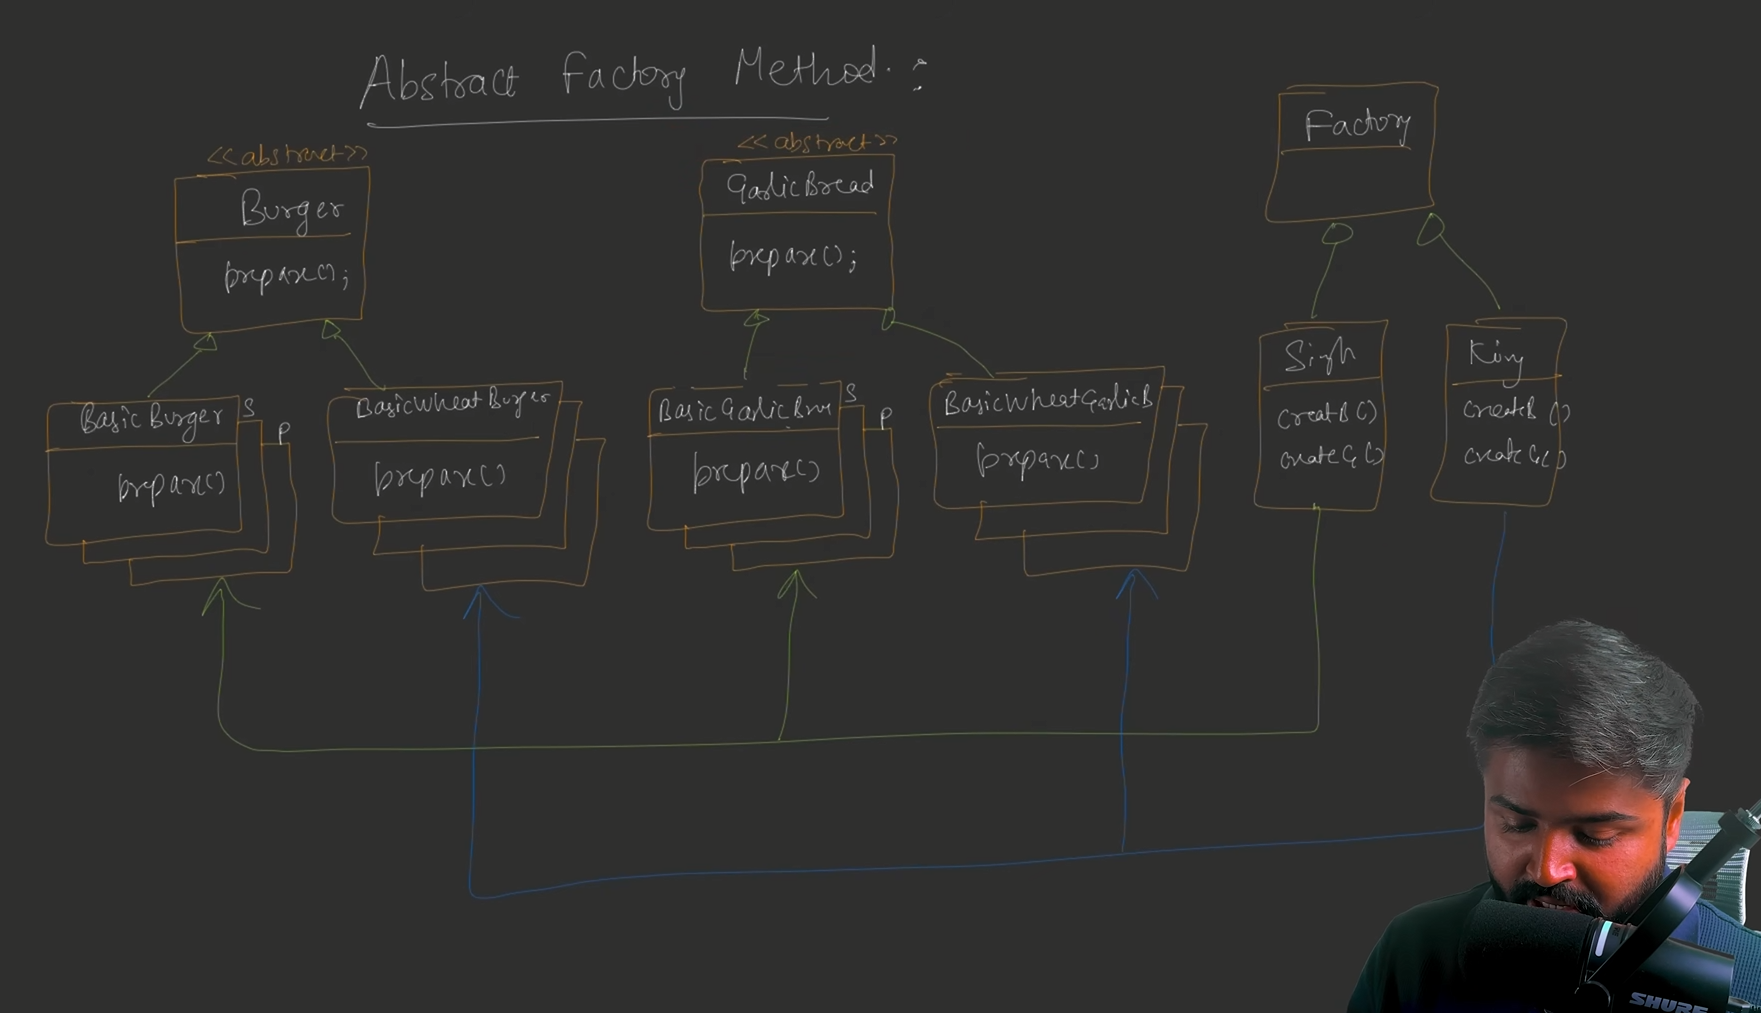 Abstract Factory Method :
<<abstract>>
Burger
prepare();
<<abstract>>
GarlicBread
prepare();
Factory
BasicBurger
S
P
prepare()
BasicWheatBurger
prepare()
BasicGarlicBre
S
P
prepare()
BasicWheatGarlicB
prepare()
Singh
creatB()
createG()
King
createB()
createG()
SHURE